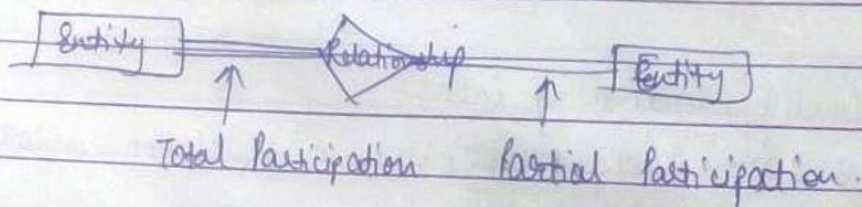 Entity Relationship Entity
Total Participation Partial Participation.